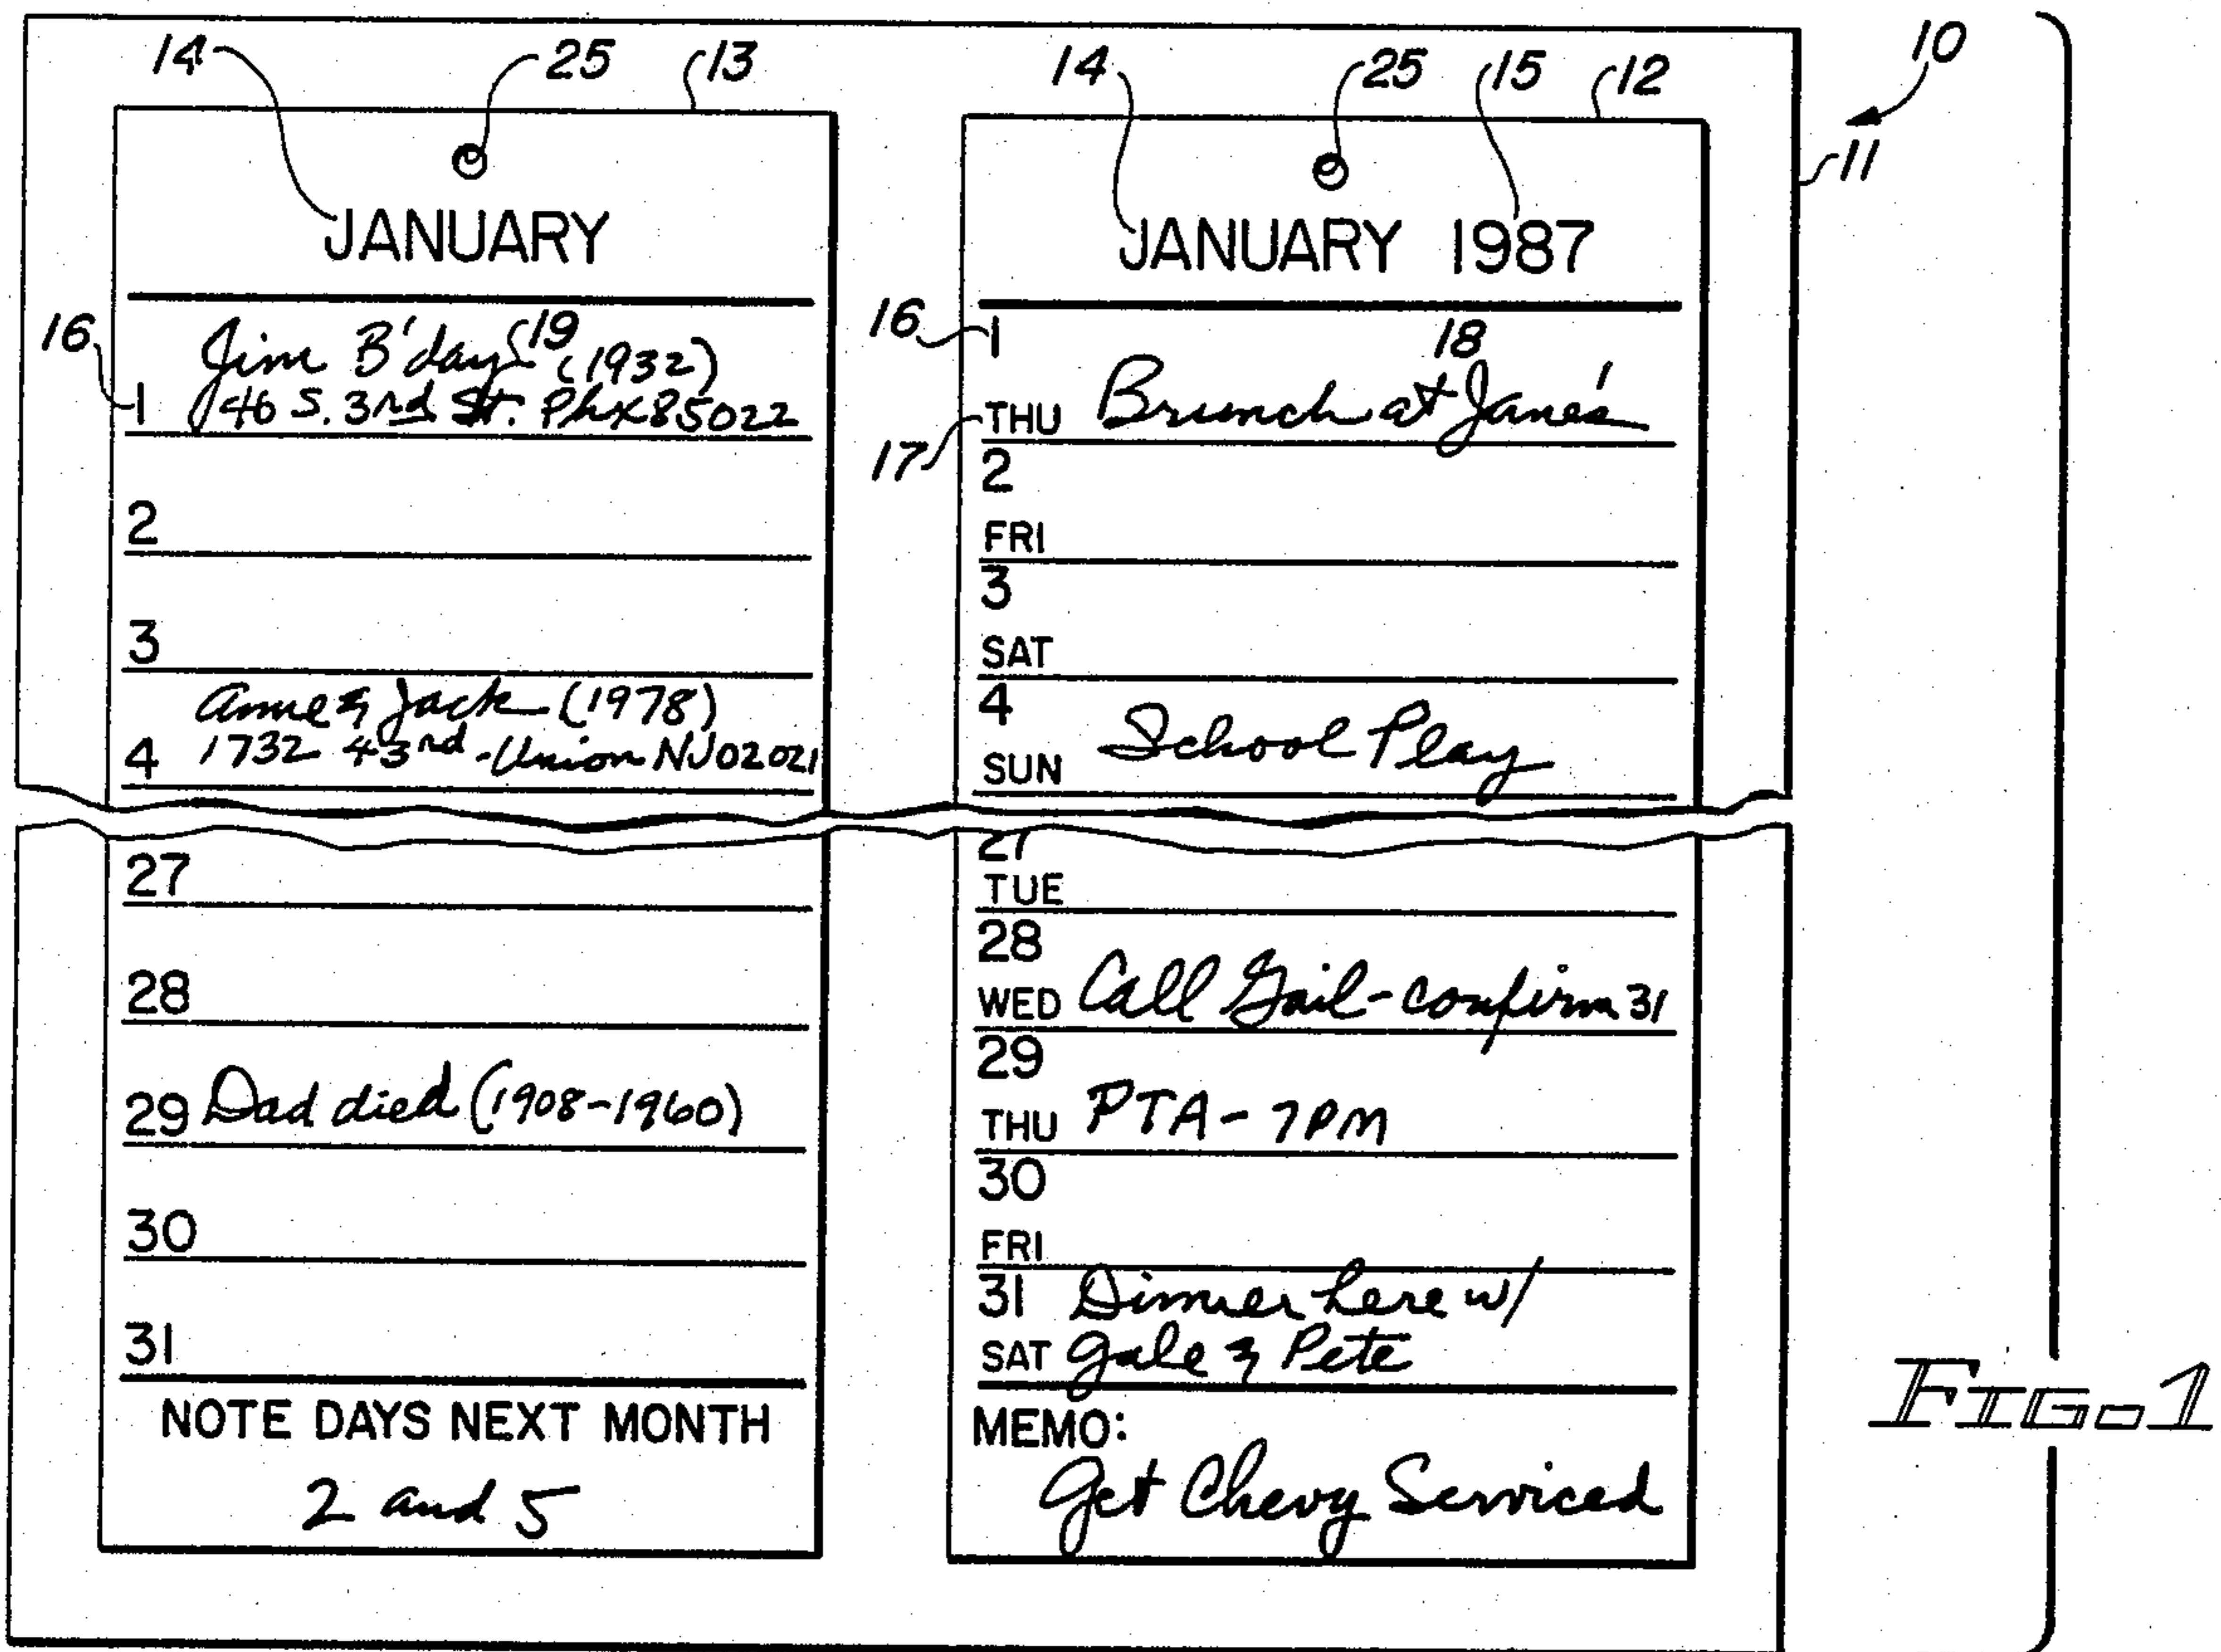 14 25 13 14 25 15 12 10
11
JANUARY
16 Jim B'day 19 (1932)
1 46 S. 3rd St. Phx 85022
2
3
Anne & Jack (1978)
4 1732 43rd - Union NJ 02021
27
28
29 Dad died (1908-1960)
30
31
NOTE DAYS NEXT MONTH
2 and 5
JANUARY 1987
16 1 18
17 THU Brunch at Jane's
2
FRI
3
SAT
4
SUN School Play
27
TUE
28
WED Call Gail - confirm 31
29
THU PTA - 7PM
30
FRI
31 Dinner here w/
SAT Gale & Pete
MEMO:
Get Chevy Serviced
FIG. 1